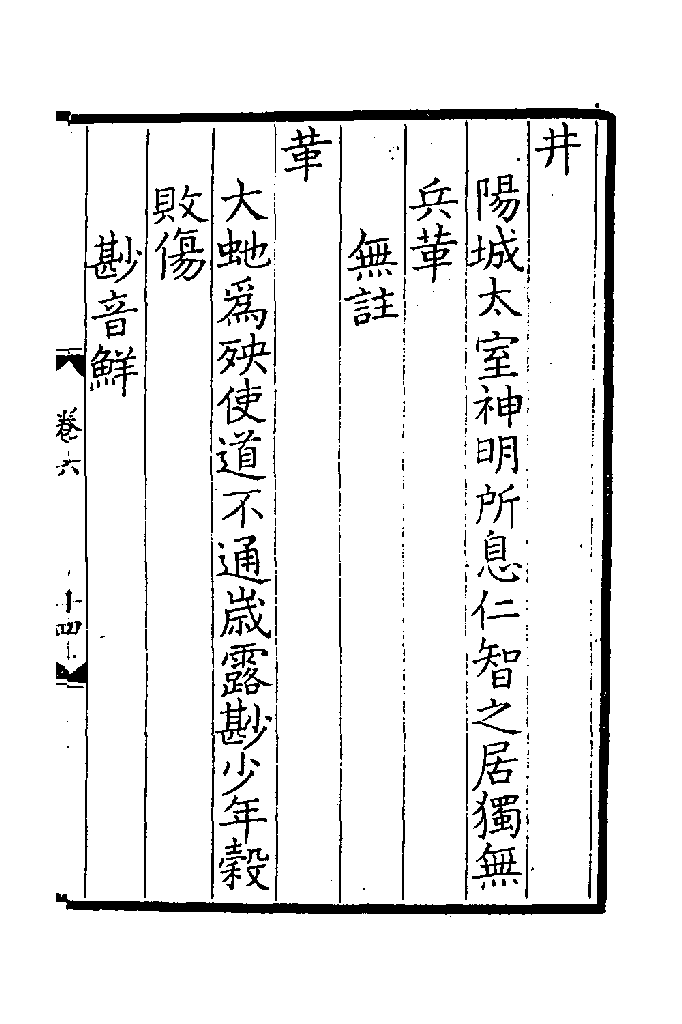 井
陽城太室神明所息仁智之居獨無
兵革
無註
革
大虵為殃使道不通嵗露尠少年糓
敗傷
尠音鮮
卷六
十四